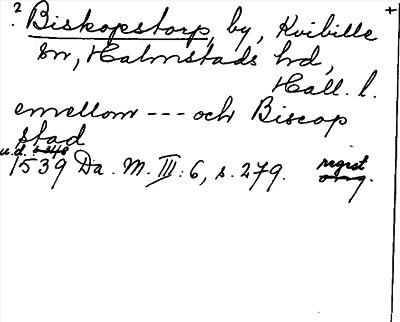 ? Biskopstorp, by, Kvibille +
sn, Halmstads hd,
Hall. l.
emellom --- och Biscop
stad
u.d.
1539 Da. M. III: 6, s. 279. regist
orig.